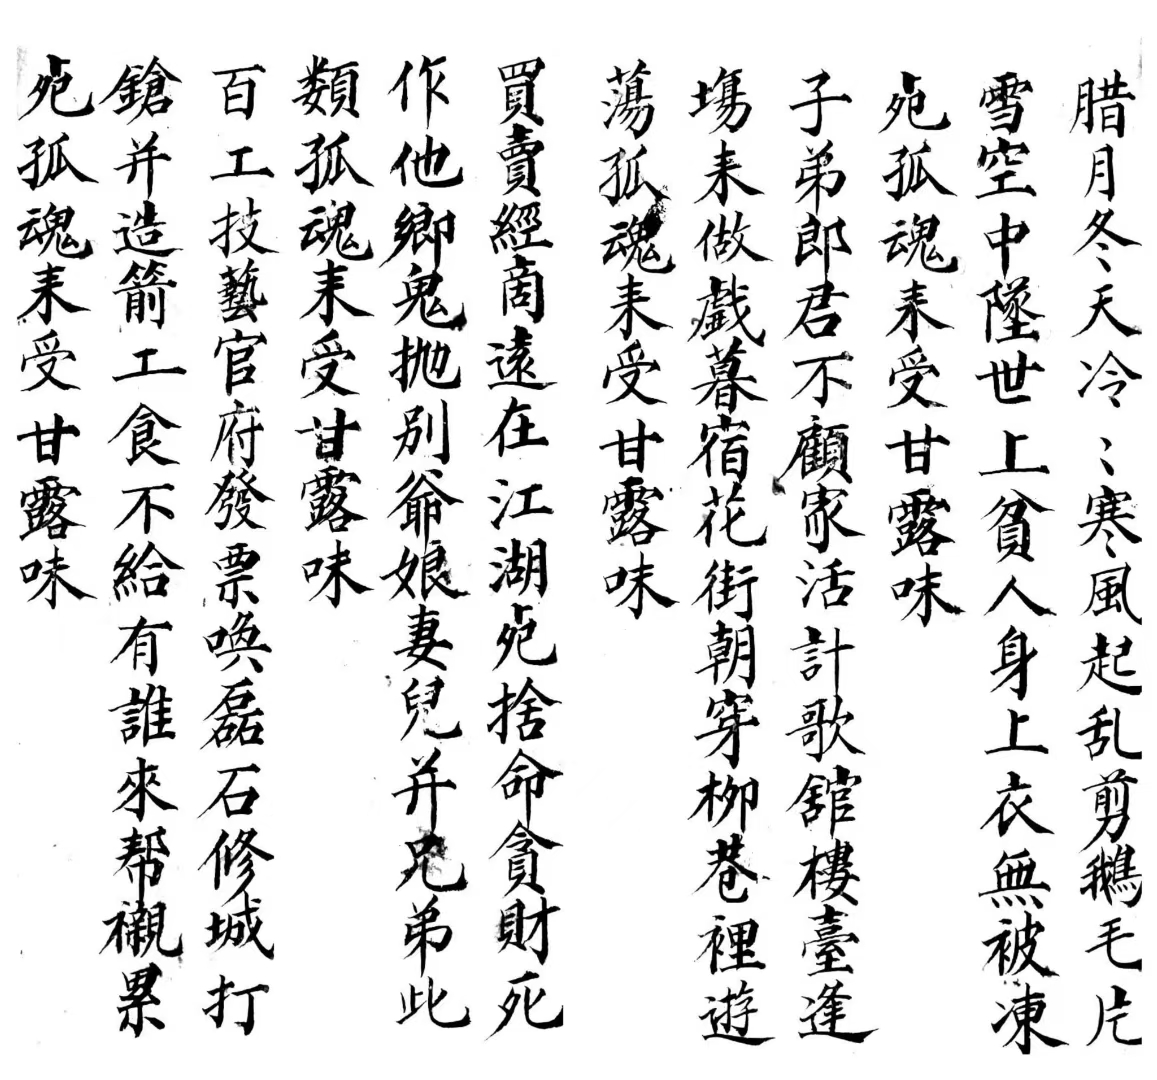 腊月冬天冷〻寒風起乱剪鵝毛片
雪空中墜世上貧人身上衣無被凍
死孤魂耒受甘露味
子弟郎君不顧家活計歌舘樓臺逢
塲耒做戲暮宿花街朝穿柳巷裡遊
蕩孤魂耒受甘露味
買賣經商遠在江湖死捨命貪財死
作他鄉鬼抛别爺娘妻兒并兄弟此
類孤魂耒受甘露味
百工技藝官府發票喚磊石修城打
鎗并造箭工食不給有誰來帮襯累
死孤魂耒受甘露味